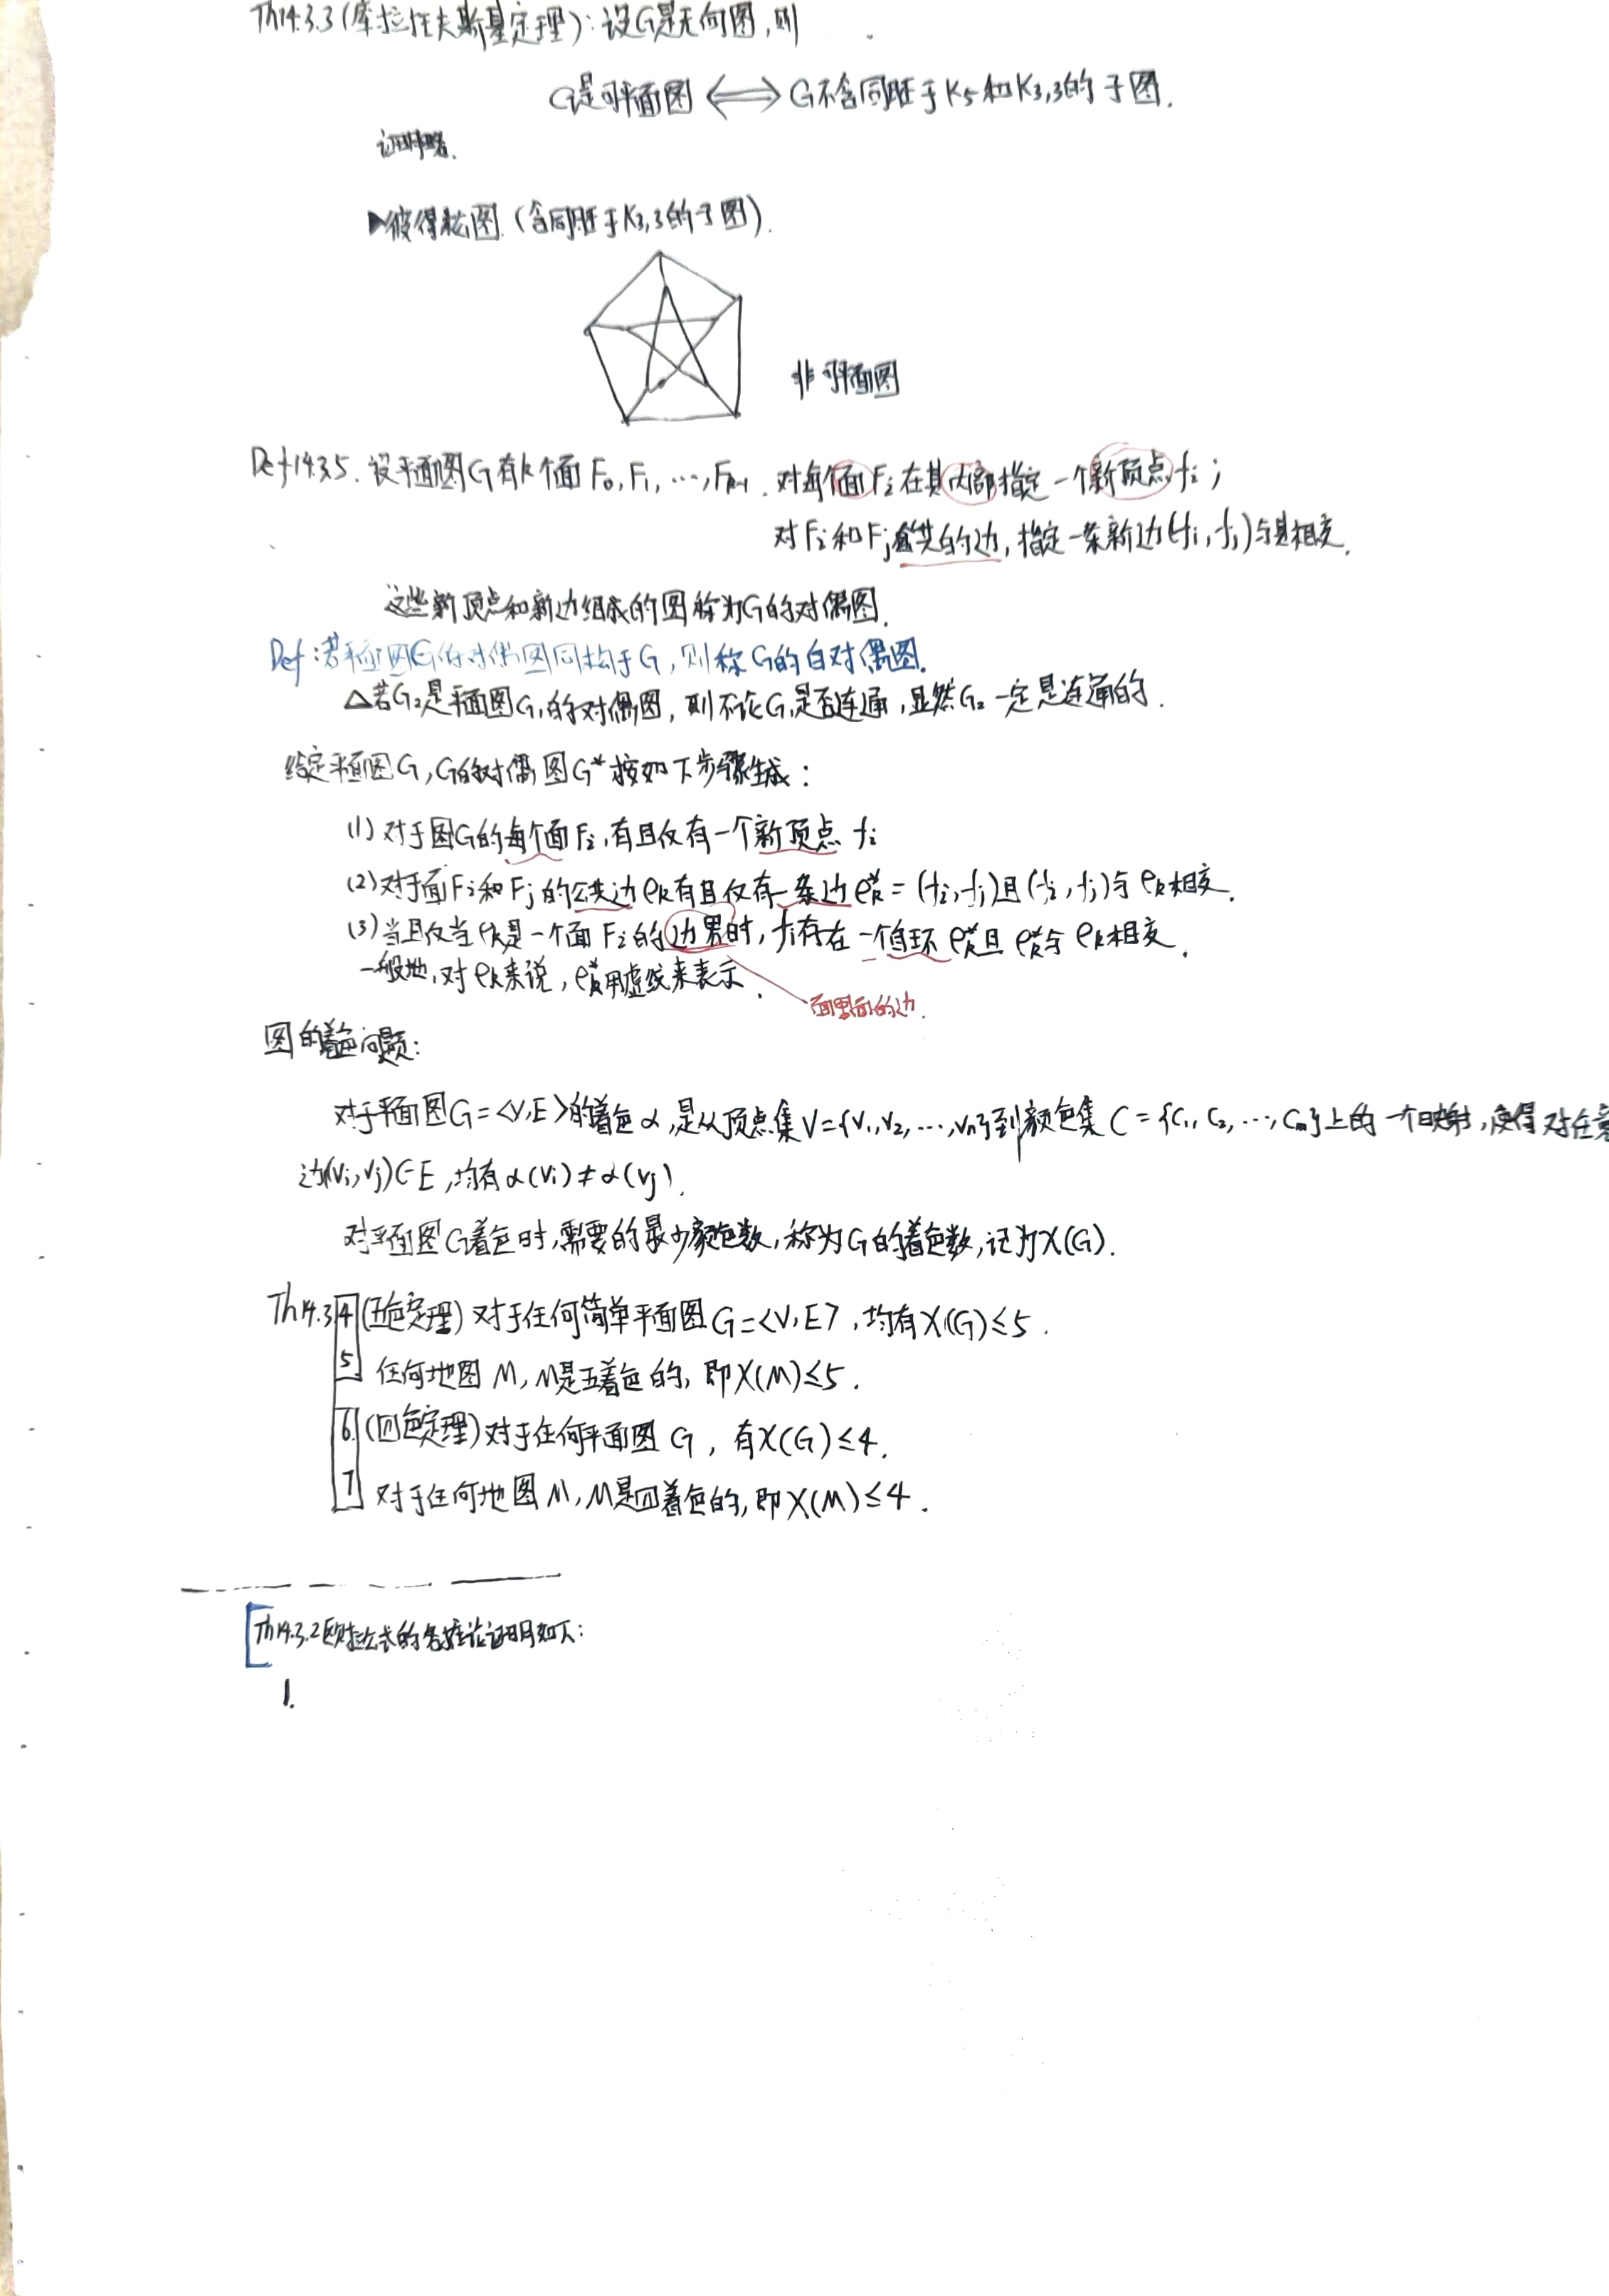 Th14.3.3(库拉托夫斯基定理):设G是无向图,则
G是可平面图 ⟺ G不含同胚于K5和K3,3的子图.
证明略.
▶彼得松图.(含同胚于K3,3的子图).
非可平面图
Def14.3.5.设平面图G有k个面F0,F1,…,Fk-1.对每个面Fi在其内部指定一个新顶点fi;
对Fi和Fj公共的边,指定一条新边(fi,fj)与其相交.
这些新顶点和新边组成的图称为G的对偶图.
Def:若平面图G的对偶图同构于G,则称G的自对偶图.
△若G2是平面图G1的对偶图,则不论G1是否连通,显然G2一定是连通的.
给定平面图G,G的对偶图G*按如下步骤生成:
(1)对于图G的每个面Fi,有且仅有一个新顶点fi
(2)对于面Fi和Fj的公共边ek有且仅有一条边ek*=(fi,fj)且(fi,fj)与ek相交.
(3)当且仅当ek是一个面Fi的边界时,fi存在一个自环ek*且ek*与ek相交.
一般地,对ek来说,ek*用虚线来表示.
面里面的边.
图的着色问题:
对于平面图G=<V,E>的着色α,是从顶点集V={v1,v2,…,vn}到颜色集C={c1,c2,…,cm}上的一个映射,使得对任意
边(vi,vj)∈E,均有α(vi)≠α(vj).
对平面图G着色时,需要的最少颜色数,称为G的着色数,记为X(G).
Th14.3.4(五色定理)对于任何简单平面图G=<V,E>,均有X(G)≤5.
5 任何地图M,M是五着色的,即X(M)≤5.
6.(四色定理)对于任何平面图G,有X(G)≤4.
7 对于任何地图M,M是四着色的,即X(M)≤4.
Th14.3.2欧拉公式的各推论证明如下:
1.